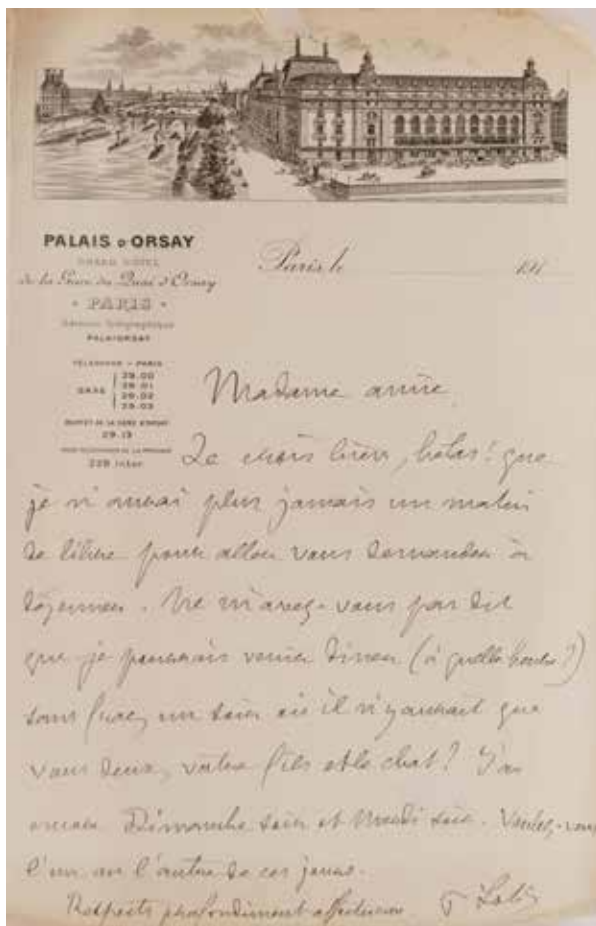 PALAIS D'ORSAY
GRAND HÔTEL
de la Gare du Quai d'Orsay
PARIS
Adresse Télégraphique
PALAIORSAY
TÉLÉPHONE - PARIS
SAXE
29.00
29.01
29.02
29.03
BUFFET DE LA GARE D'ORSAY
29.13
229 Inter
Paris le 191
Madame amie,
Je crois bien, hélas! que
je n'aurai plus jamais un matin
de libre pour aller vous demander à
déjeuner. Ne m'avez-vous pas dit
que je pourrais venir dîner (à quelle heure?)
sans frac, un soir où il n'y aurait que
vous deux, votre fils et le chat? J'ai
encore Dimanche soir et Mardi soir. Voulez-vous
l'un ou l'autre de ces jours.
Respects profondément affectueux
P Loti